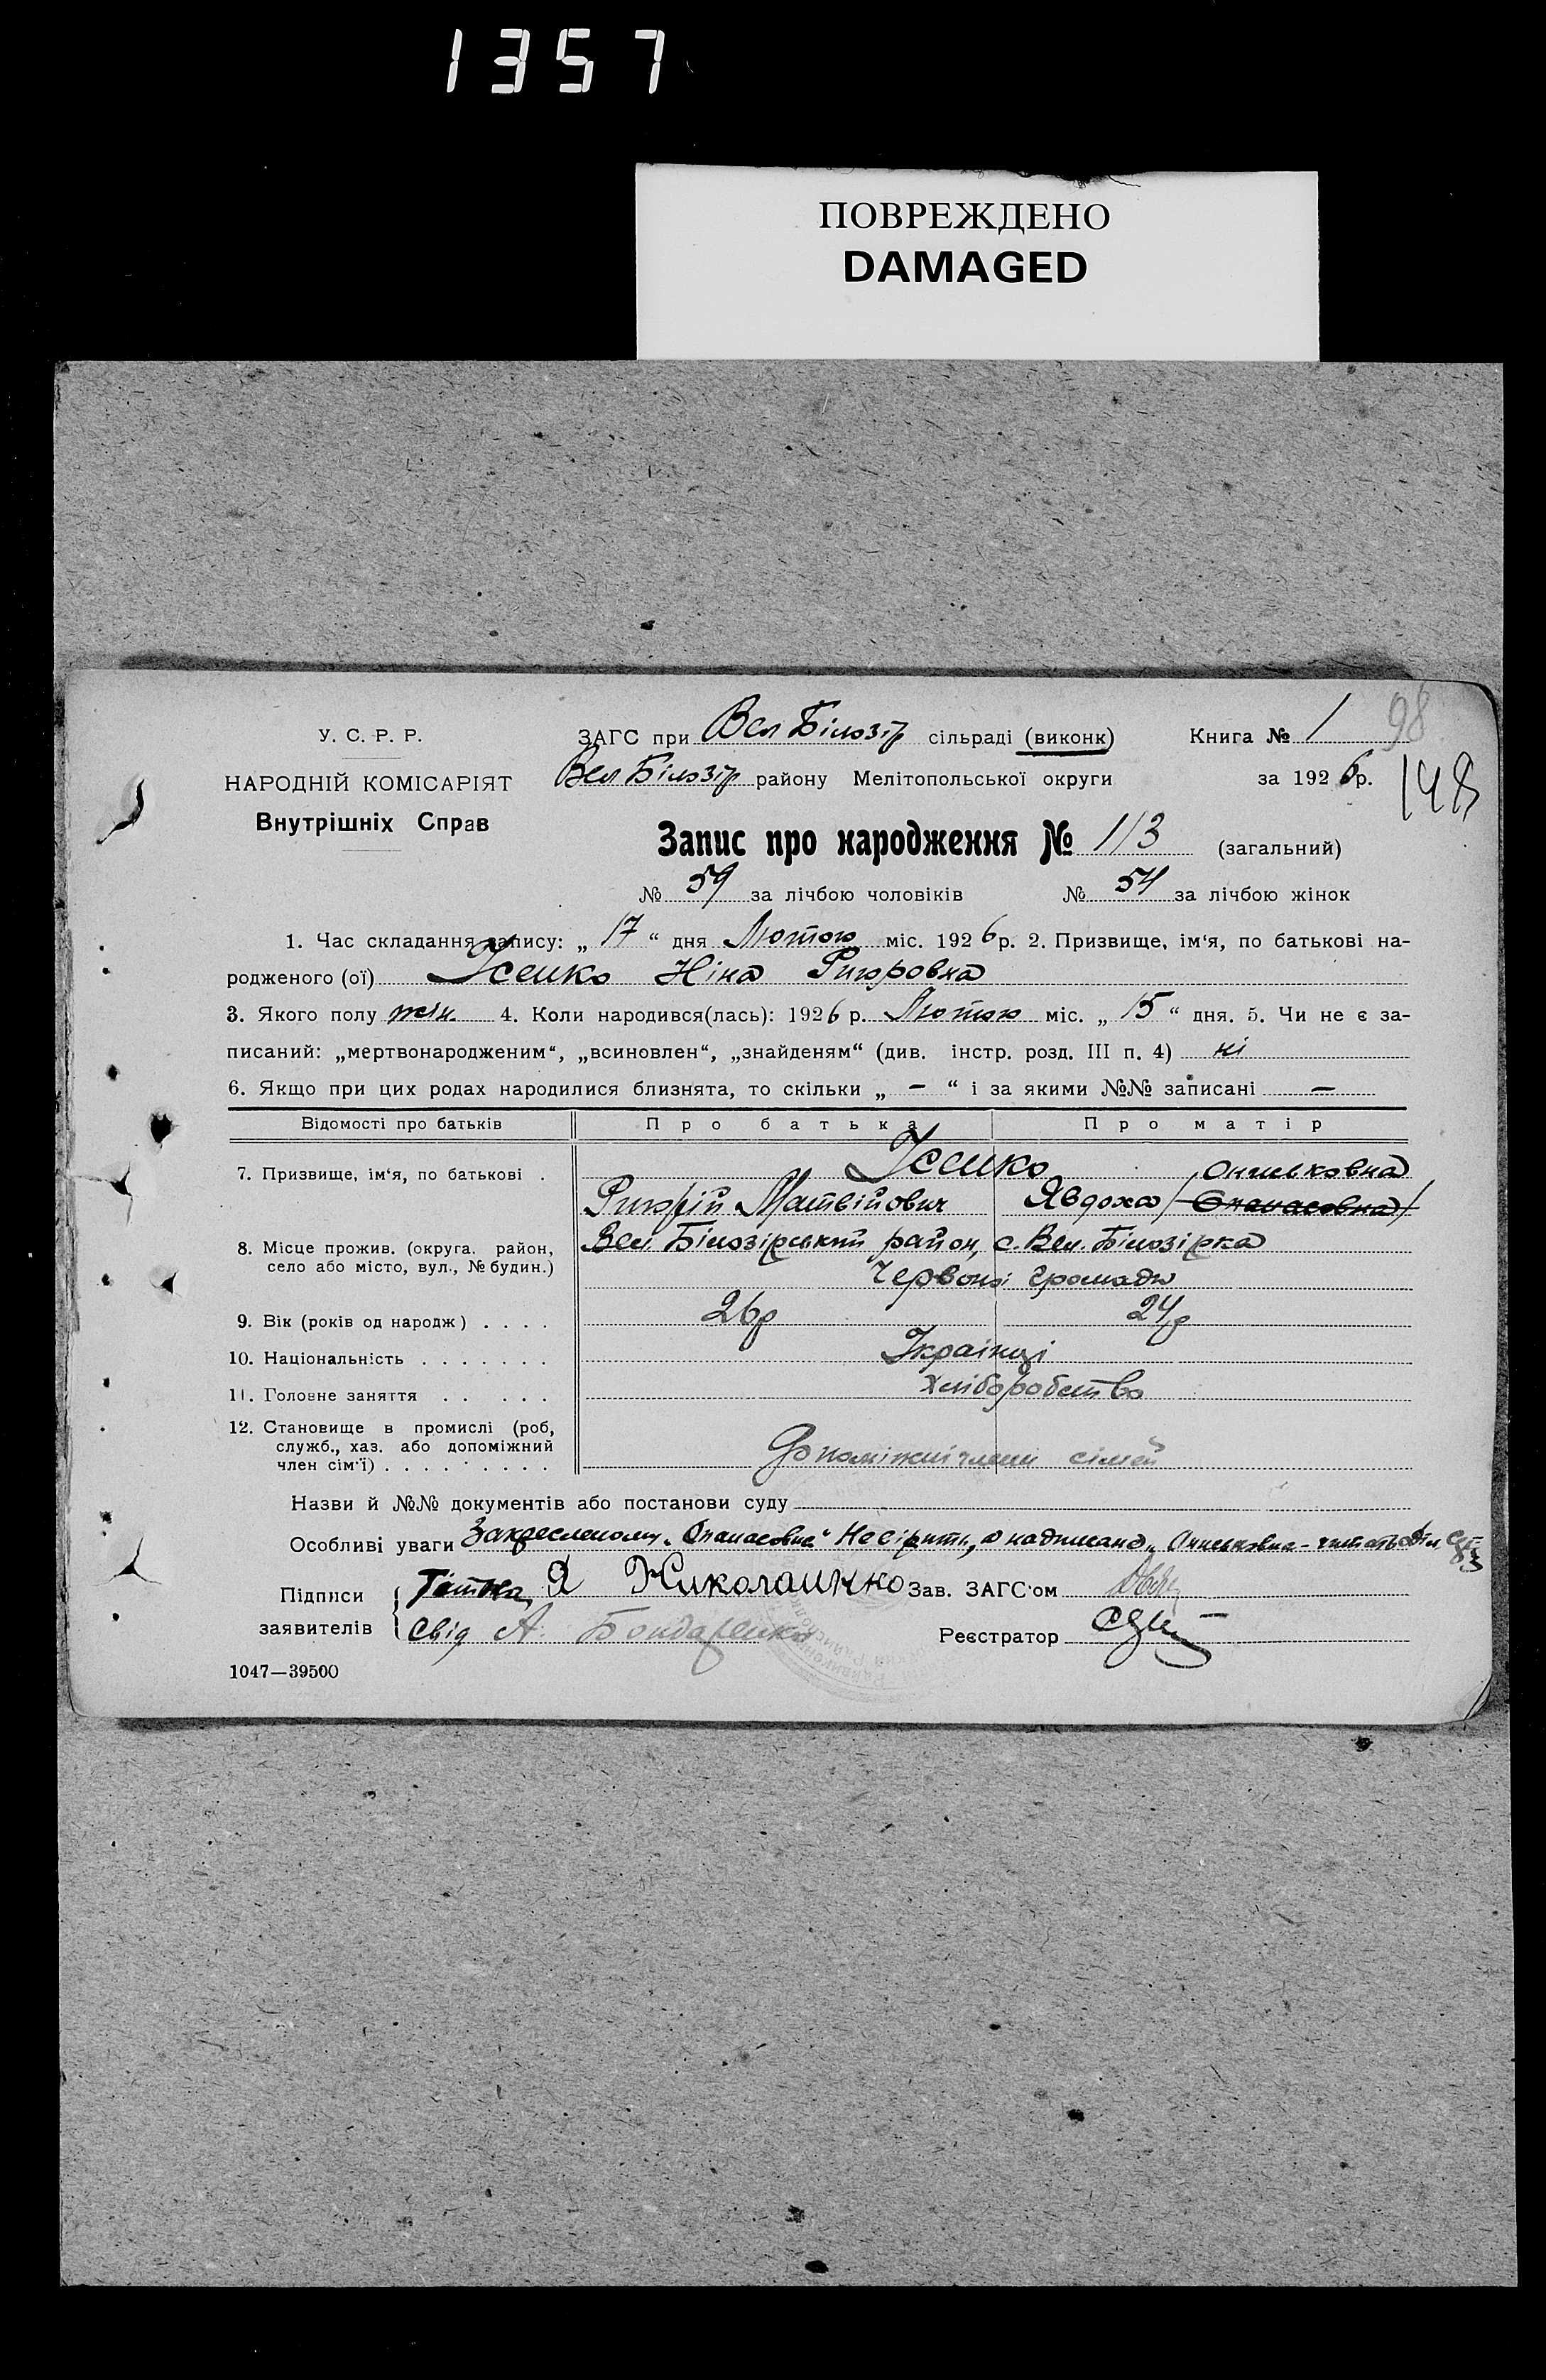 1357
ПОВРЕЖДЕНО
DAMAGED
98
148
У. С. Р. Р.
НАРОДНІЙ КОМІСАРІЯТ
Внутрішніх Справ
ЗАГС при Вел Білозір сільраді (виконк) Книга № 1
Вел Білозір району Мелітопольської округи за 1926 р.
Запис про народження № 113 (загальний)
№ 59 за лічбою чоловіків № 54 за лічбою жінок
1. Час складання запису: „ 17 “ дня Лютого міс. 1926 р. 2. Призвище, ім‘я, по батькові на-
родженого (ої) Усенко Ніна Григоровна
3. Якого полу жін. 4. Коли народився(лась): 1926 р. Лютого міс. „ 15 “ дня. 5. Чи не є за-
писаний: „мертвонародженим“, „всиновлен“, „знайденям“ (див. інстр. розд. III п. 4) ні
6. Якщо при цих родах народилися близнята, то скільки „ – “ і за якими №№ записані —
Відомості про батьків Про батька Про матір
7. Призвище, ім‘я, по батькові . Усенко Ониськовна
Григорій Матвійович Явдоха /Опанасовна/
8. Місце прожив. (округа. район, Вел. Білозірський район, с. Вел. Білозірка
село або місто, вул., № будин.)
Червоної громади
9. Вік (років од народж) . . . . 26р 24р
10. Національність . . . . . . . Українці
11. Головне заняття . . . . . хліборобство
12. Становище в промислі (роб,
служб., хаз. або допоміжний
член сім'ї) . . . . . . . . . Допоміжні члени сімей
Назви й №№ документів або постанови суду
Особливі уваги Закресленому „Опанасовна“ Не вірити, а надписано „Ониськовна - читать
Підписи заявителів Тітка, Я Николаинко Зав. ЗАГС'ом
Свід А. Бондаренко Реєстратор
1047—39500